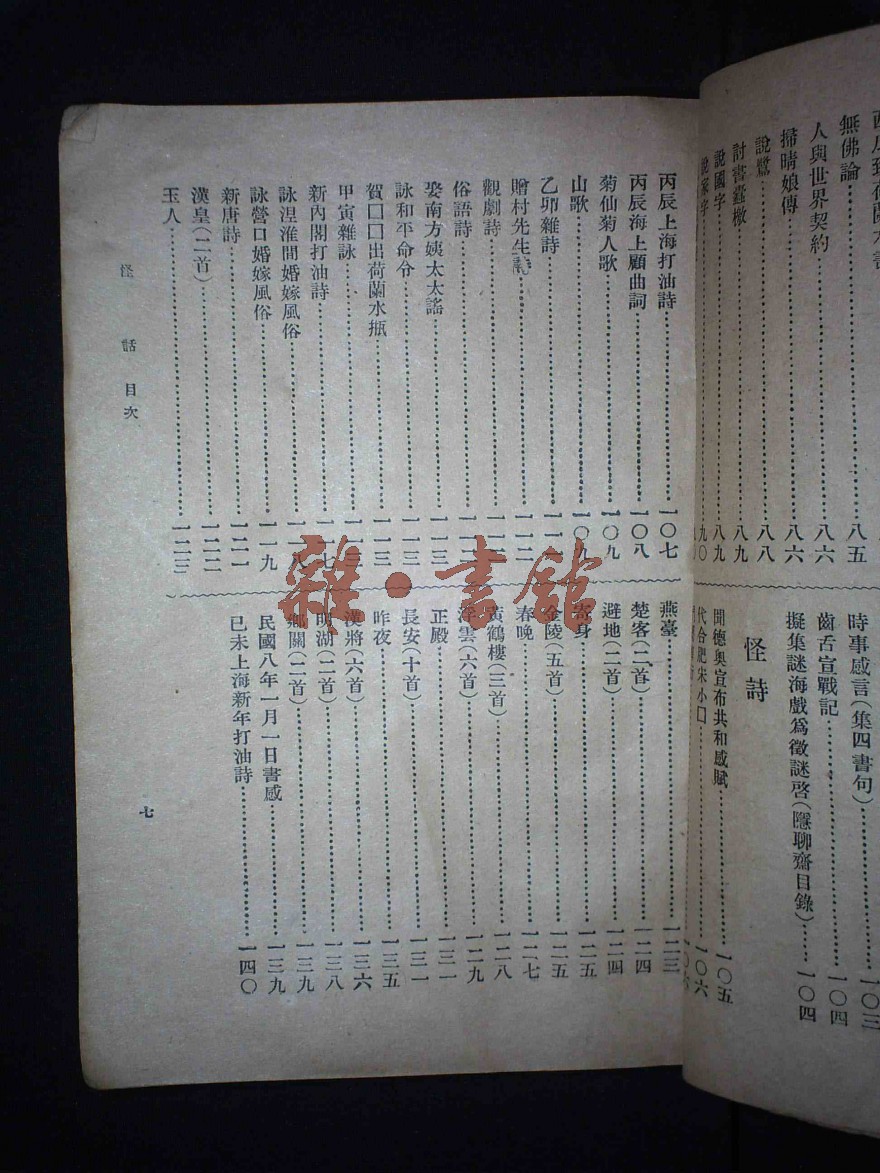 無佛論……八五
人與世界契約……八六
掃晴娘傳……八六
說鷺……八八
討書蠹檄……八九
說國字……八九
說家字……九〇
時事感言(集四書句)……一〇三
齒舌宣戰記……一〇四
擬集謎海戲爲徵謎啓(隱聊齋目錄)……一〇四
怪詩
聞德奧宣布共和感賦……一〇五
代合肥宋小囗……一〇六
丙辰上海打油詩……一〇七
丙辰海上顧曲詞……一〇八
菊仙菊人歌……一〇九
山歌……一〇九
乙卯雜詩
贈村先生
觀劇詩
俗語詩
娶南方姨太太謠……一一三
詠和平命令……一一三
賀囗囗出荷蘭水瓶……一一三
甲寅雜詠……一一三
新內閣打油詩……一一七
詠涅淮間婚嫁風俗……一一八
詠營口婚嫁風俗……一一九
新唐詩……一二一
漢皇(二首)……一二二
玉人……一二三
燕臺……一二三
楚客(二首)……一二四
避地(二首)……一二四
寄身……一二五
金陵(五首)……一二五
春晚……一二七
黃鶴樓(三首)……一二八
浮雲(六首)……一二九
正殿……一三一
長安(十首)……一三一
昨夜……一三五
漢將(六首)……一三六
明湖(二首)……一三八
鄉關(二首)……一三九
民國八年一月一日書感……一三九
已未上海新年打油詩……一四〇
怪話 目次
七
雜·書館